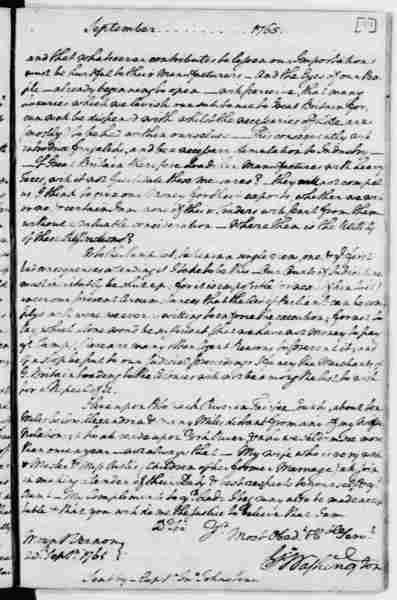 September . . . . . . . . . 1765.
and that whatsoever contributes to lessen our Importations
must be hurtful to their Manufacturers — And the Eyes of our Peo-
ple — already beginning to open — will perceive, that many
Luxuries which we lavish our substance to Great Britain for,
can well be dispensd with whilst the necessaries of Life are
(mostly) to be had within ourselves — This consequently will
introduce frugality, and be a necessary stimulation to Industry
— If Great Britain therefore Loads her Manufactures with heavy
Taxes, will it not facilitate these measures? they will not compel
us I think to give our Money for their exports, whether we will
or no & certain I am none of their Traders will part from them
without a valuable consideration — Where then is the Utility
of these Restrictions?
As to the Stamp Act, taken in a single view, one, & yᵉ first
bad consequences attending it I take to be this — Our Courts of Judicature
must inevitably be shut up; for it is impossible (or next
under our present Circumstances that the Act of Parliamᵗ can be com-
plyd with were we ever so willing to enforce the execution; for not to
say, which alone woud be sufficient, that we have not Money to pay
yᵉ Stamps, there are many other Cogent Reasons to prevent it; and
if a stop be put to our judicial proceedings I fancy the Merchants of
G. Britain trading to the Colonies will not be among the last to wish
for a Repeal of it.
I live upon Potomack River in Fairfax County, about ten
Miles below Alexandria & many Miles distant from any of my Wifes
Relations; who all reside upon York River, & whom we seldom see more
than once a year — not always that — My wife who is very well
& Master & Miss Custis (Children of her former Marriage) all join
in making a tender of their Duty & best respects to yourself &
Aunt — My Compliments to yʳ Lady I beg may also be made accep-
table & that you will do me the justice to believe that I am
Dʳ Sir Yʳ Most Obedᵗ Hble Servᵗ
Mount Vernon
20ᵗʰ Septʳ 1765
Gᵒ Washington
Sent by Captⁿ Jnᵒ Johnstoun